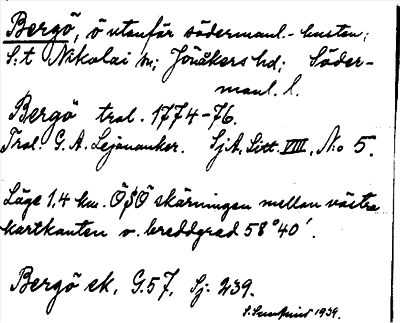 Bergö, ö utanför södermanl.-kusten;
S:t Nikolai sn; Jönåkers hd; Söder-
manl. l.
Bergö tral. 1774-76.
Tral. G. A. Lejonanker. SjA, Litt. VIII, No 5.
Läge 1,4 km. ÖSÖ skärningen mellan västra
kartkanten o. breddgrad 58°40'.
Bergö ek, G.57, Sj. 239.
1939.